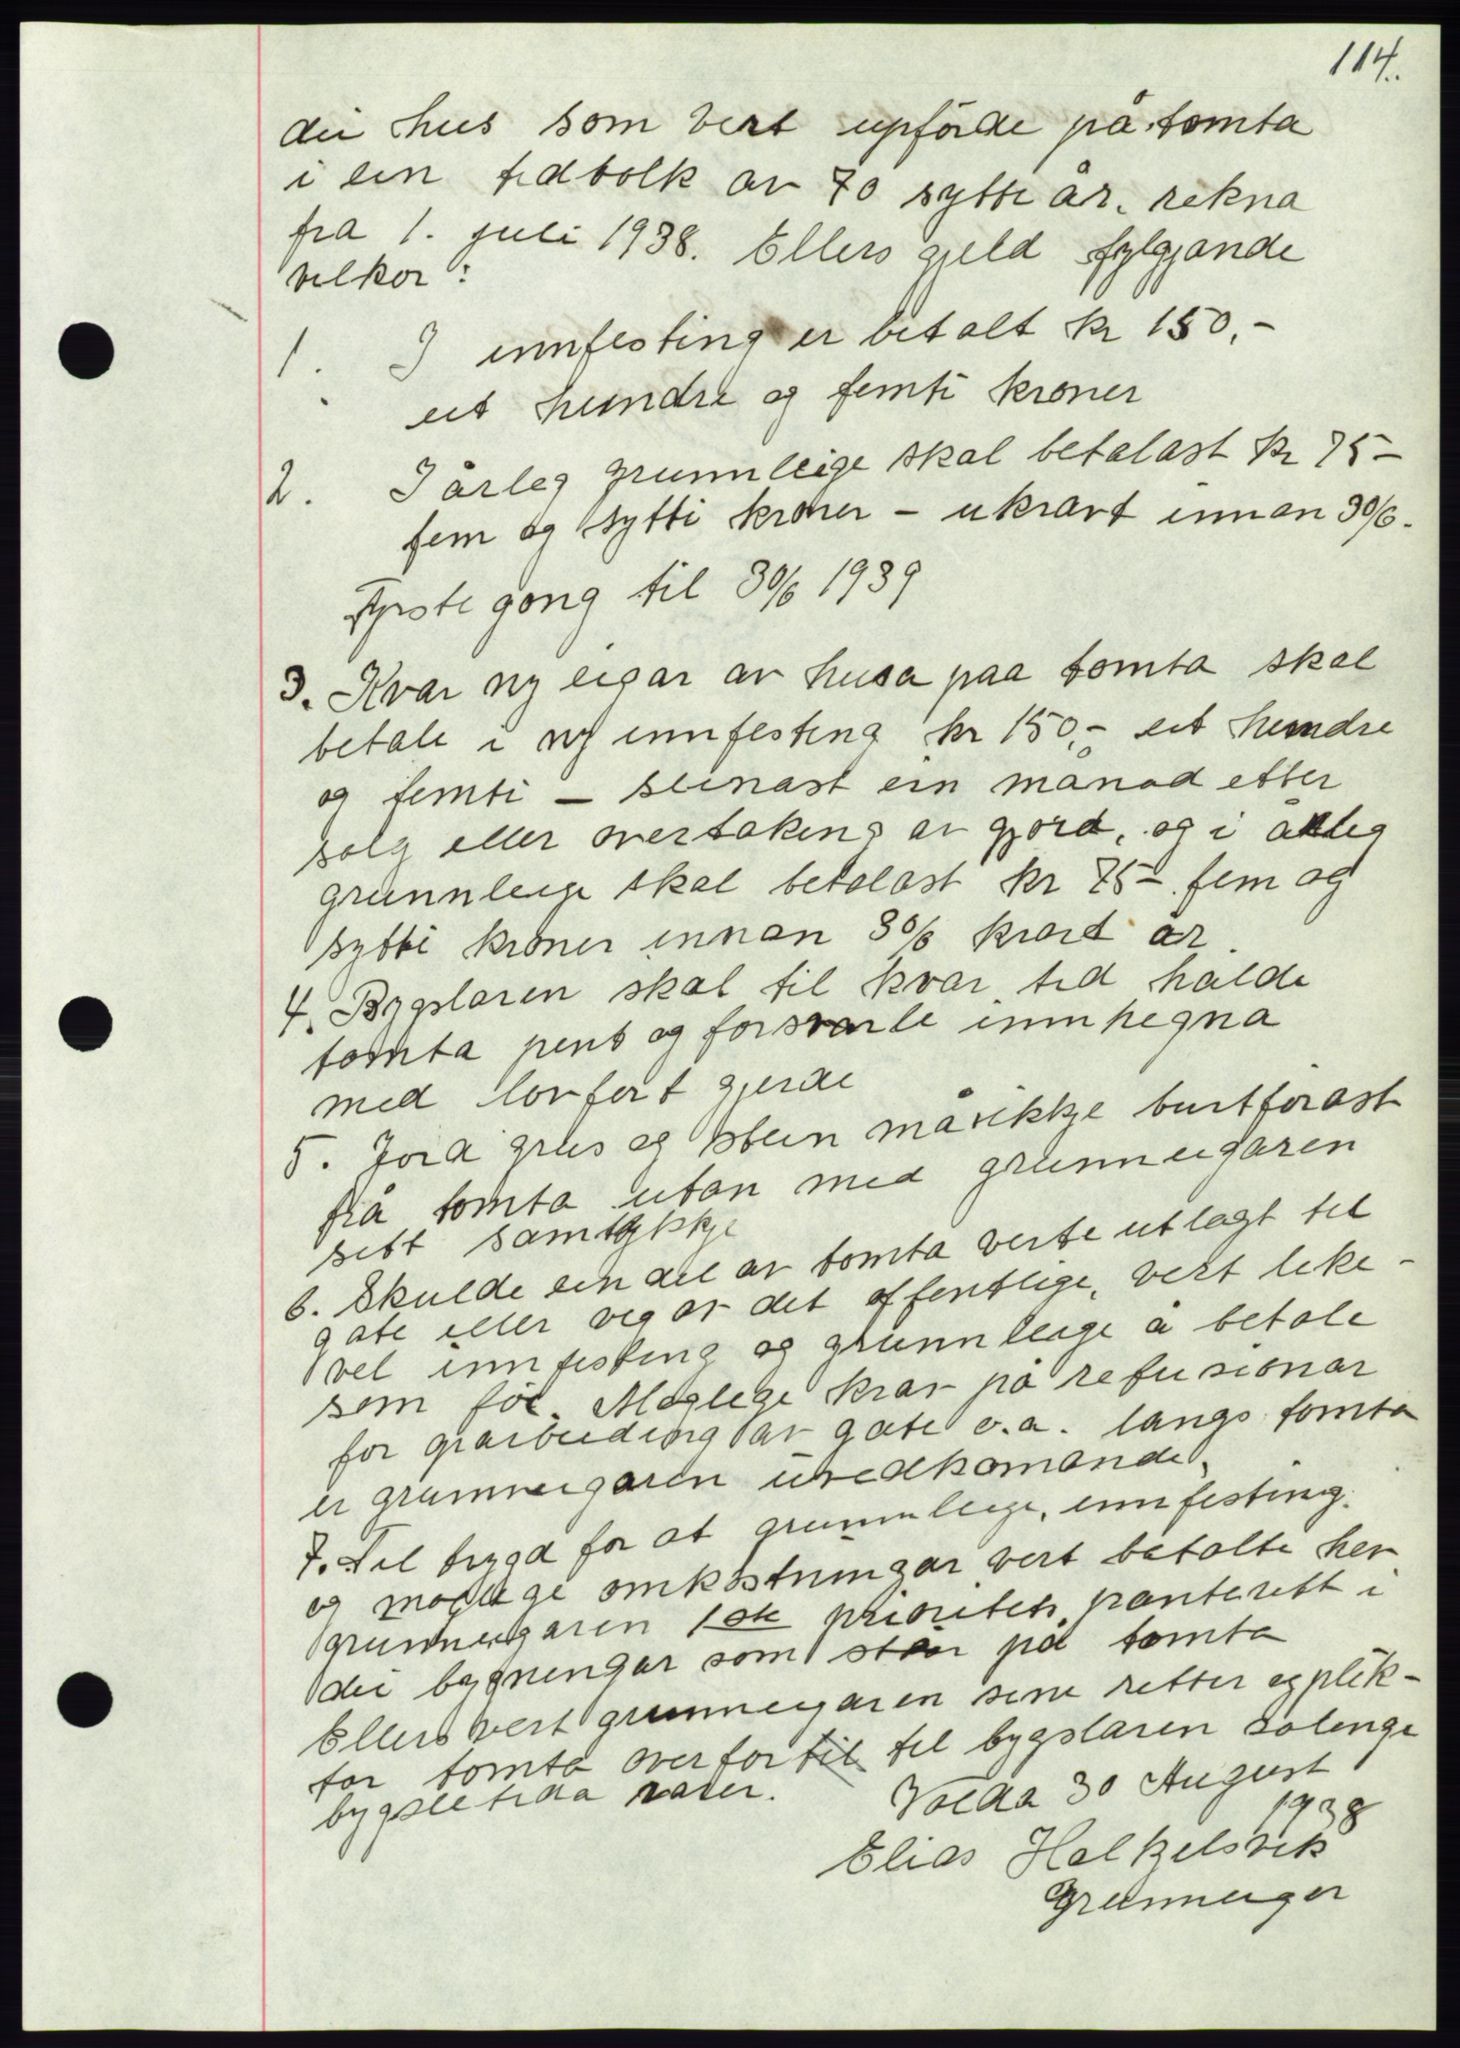 114.
dei hus som vert upförde på tomta
i ein tidbolk av 70 sytti år. rekna
fra 1. juli 1938. Ellers gjeld fylgjande
vilkor:
1. I innfesting er betalt kr 150,-
eit hundre og femti kroner
2. I årleg grunnleige skal betalast kr 75-
fem og sytti kroner - ukravt innan 30/6.
Fyrste gong til 30/6 1939
3. Kvar ny eigar av husa paa tomta skal
betale i ny innfesting kr 150,- eit hundre
og femti - seinast ein månad etter
salg eller overtaking er gjord, og i årleg
grunnleige skal betalast kr 75- fem og
sytti kroner innan 30/6 kvart år.
4. Bygslaren skal til kvar tid halde
tomta pent og forsvarle innhegna
med lovført gjerde
5. Jord grus og stein må ikkje burtförast
frå tomta utan med grunneigaren
sitt samtykkje
6. Skulde ein del av tomta verte utlagt til
gate eller veg av det offentlige, vert like-
vel innfesting og grunnleige å betale
som för. Moglege krav på refusionar
for oparbeiding av gate o.a. langs tomta
er grunneigaren uvedkomande.
7. Til trygd for at grunnleige, innfesting.
og moglege omkostningar vert betalte hev
grunneigaren 1ste prioritets panterett i
dei bygningar som står på tomta
Ellers vert grunneigaren sine retter og plik-
tar tomta overfor til til bygslaren solenge
bygsletida varer.
Volda 30 August
1938
Elias Halkjelsvik
Grunneiger